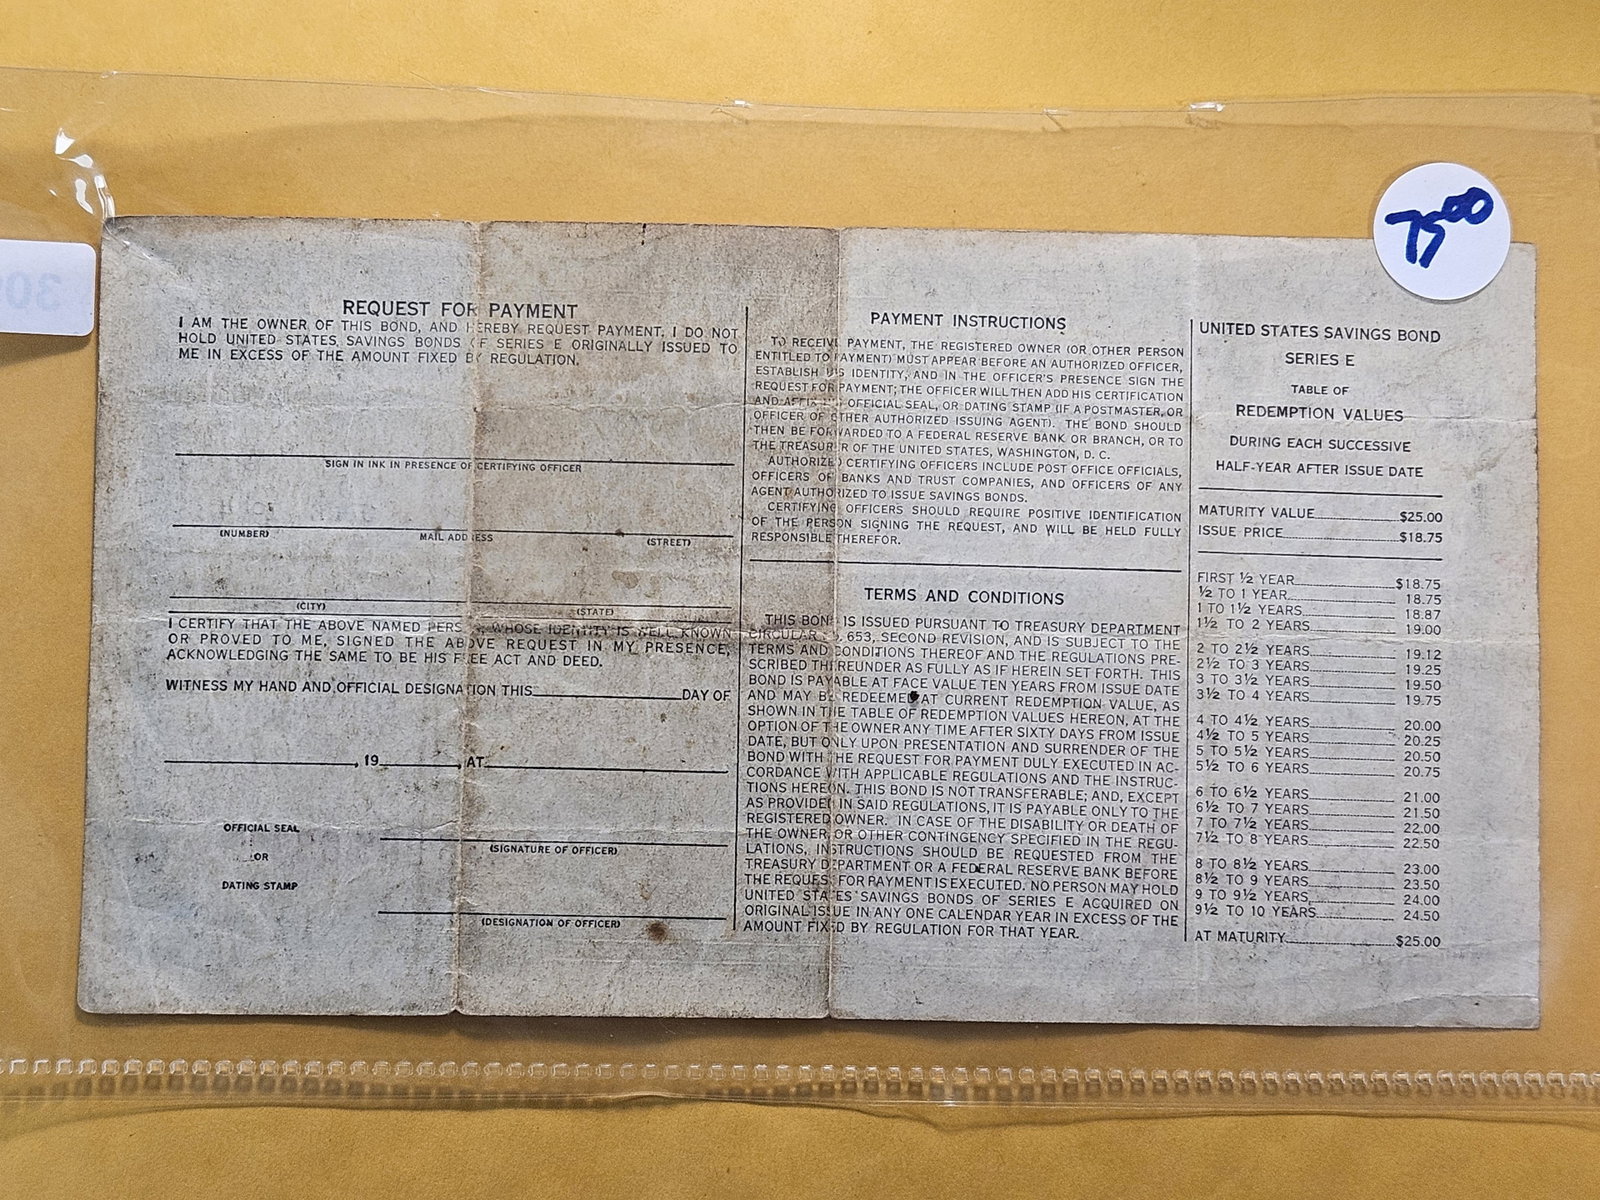 75.00
30
REQUEST FOR PAYMENT
I AM THE OWNER OF THIS BOND, AND HEREBY REQUEST PAYMENT. I DO NOT
HOLD UNITED STATES SAVINGS BONDS OF SERIES E ORIGINALLY ISSUED TO
ME IN EXCESS OF THE AMOUNT FIXED BY REGULATION.
SIGN IN INK IN PRESENCE OF CERTIFYING OFFICER
(NUMBER) MAIL ADDRESS (STREET)
(CITY) (STATE)
I CERTIFY THAT THE ABOVE NAMED PERSON, WHOSE IDENTITY IS WELL KNOWN
OR PROVED TO ME, SIGNED THE ABOVE REQUEST IN MY PRESENCE,
ACKNOWLEDGING THE SAME TO BE HIS FREE ACT AND DEED.
WITNESS MY HAND AND OFFICIAL DESIGNATION THIS DAY OF
, 19 , AT
OFFICIAL SEAL
OR
DATING STAMP
(SIGNATURE OF OFFICER)
(DESIGNATION OF OFFICER)
PAYMENT INSTRUCTIONS
TO RECEIVE PAYMENT, THE REGISTERED OWNER (OR OTHER PERSON
ENTITLED TO PAYMENT) MUST APPEAR BEFORE AN AUTHORIZED OFFICER,
ESTABLISH HIS IDENTITY, AND IN THE OFFICER'S PRESENCE SIGN THE
REQUEST FOR PAYMENT; THE OFFICER WILL THEN ADD HIS CERTIFICATION
AND AFFIX HIS OFFICIAL SEAL, OR DATING STAMP (IF A POSTMASTER, OR
OFFICER OF OTHER AUTHORIZED ISSUING AGENT). THE BOND SHOULD
THEN BE FORWARDED TO A FEDERAL RESERVE BANK OR BRANCH, OR TO
THE TREASURER OF THE UNITED STATES, WASHINGTON, D. C.
AUTHORIZED CERTIFYING OFFICERS INCLUDE POST OFFICE OFFICIALS,
OFFICERS OF BANKS AND TRUST COMPANIES, AND OFFICERS OF ANY
AGENT AUTHORIZED TO ISSUE SAVINGS BONDS.
CERTIFYING OFFICERS SHOULD REQUIRE POSITIVE IDENTIFICATION
OF THE PERSON SIGNING THE REQUEST, AND WILL BE HELD FULLY
RESPONSIBLE THEREFOR.
TERMS AND CONDITIONS
THIS BOND IS ISSUED PURSUANT TO TREASURY DEPARTMENT
CIRCULAR 653, SECOND REVISION, AND IS SUBJECT TO THE
TERMS AND CONDITIONS THEREOF AND THE REGULATIONS PRE-
SCRIBED THEREUNDER AS FULLY AS IF HEREIN SET FORTH. THIS
BOND IS PAYABLE AT FACE VALUE TEN YEARS FROM ISSUE DATE
AND MAY BE REDEEMED AT CURRENT REDEMPTION VALUE, AS
SHOWN IN THE TABLE OF REDEMPTION VALUES HEREON, AT THE
OPTION OF THE OWNER ANY TIME AFTER SIXTY DAYS FROM ISSUE
DATE, BUT ONLY UPON PRESENTATION AND SURRENDER OF THE
BOND WITH THE REQUEST FOR PAYMENT DULY EXECUTED IN AC-
CORDANCE WITH APPLICABLE REGULATIONS AND THE INSTRUC-
TIONS HEREON. THIS BOND IS NOT TRANSFERABLE; AND, EXCEPT
AS PROVIDED IN SAID REGULATIONS, IT IS PAYABLE ONLY TO THE
REGISTERED OWNER. IN CASE OF THE DISABILITY OR DEATH OF
THE OWNER, OR OTHER CONTINGENCY SPECIFIED IN THE REGU-
LATIONS, INSTRUCTIONS SHOULD BE REQUESTED FROM THE
TREASURY DEPARTMENT OR A FEDERAL RESERVE BANK BEFORE
THE REQUEST FOR PAYMENT IS EXECUTED. NO PERSON MAY HOLD
UNITED STATES SAVINGS BONDS OF SERIES E ACQUIRED ON
ORIGINAL ISSUE IN ANY ONE CALENDAR YEAR IN EXCESS OF THE
AMOUNT FIXED BY REGULATION FOR THAT YEAR.
UNITED STATES SAVINGS BOND
SERIES E
TABLE OF
REDEMPTION VALUES
DURING EACH SUCCESSIVE
HALF-YEAR AFTER ISSUE DATE
MATURITY VALUE $25.00
ISSUE PRICE $18.75
FIRST ½ YEAR $18.75
½ TO 1 YEAR 18.75
1 TO 1½ YEARS 18.87
1½ TO 2 YEARS 19.00
2 TO 2½ YEARS 19.12
2½ TO 3 YEARS 19.25
3 TO 3½ YEARS 19.50
3½ TO 4 YEARS 19.75
4 TO 4½ YEARS 20.00
4½ TO 5 YEARS 20.25
5 TO 5½ YEARS 20.50
5½ TO 6 YEARS 20.75
6 TO 6½ YEARS 21.00
6½ TO 7 YEARS 21.50
7 TO 7½ YEARS 22.00
7½ TO 8 YEARS 22.50
8 TO 8½ YEARS 23.00
8½ TO 9 YEARS 23.50
9 TO 9½ YEARS 24.00
9½ TO 10 YEARS 24.50
AT MATURITY $25.00